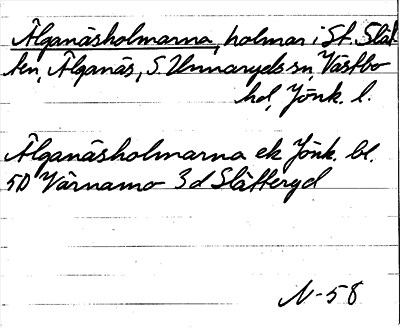 Älganäsholmarna, holmar i St. Slät-
ten, Älganäs, S. Unnaryds sn, Västbo
hd, Jönk. l.
Älganäsholmarna ek Jönk. bl.
5D Värnamo 3d Slätteryd
N-58